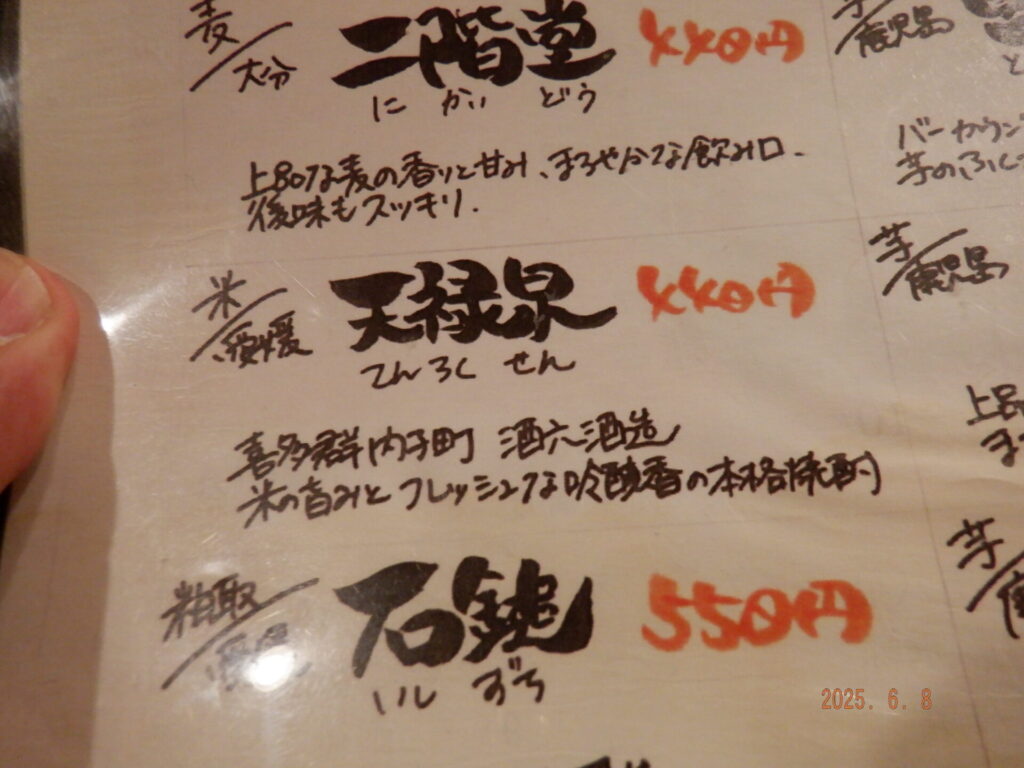 麦/大分
二階堂 440円
に かい どう
上品な麦の香りと甘み、まろやかな飲み口.
後味もスッキリ.
米/愛媛
天禄泉 440円
てんろく せん
喜多群内子町 酒六酒造
米の旨みと フレッシュな吟醸香の本格焼酎
粕取/愛媛
石鎚 550円
いし ずち
芋/鹿児島
バーカウン
芋のふく
芋/鹿児島
上品
まろ
芋
2025. 6. 8